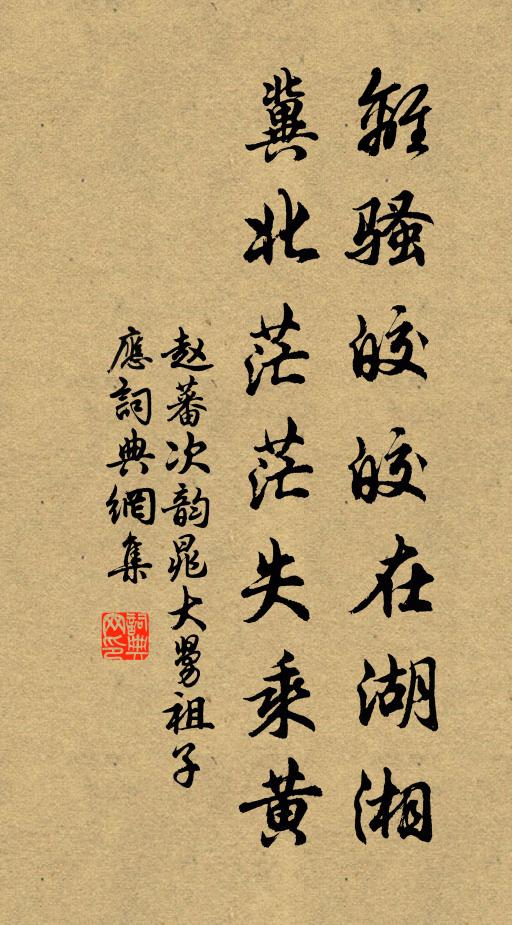 離騷皎皎在湖湘
冀北茫茫失乘黃
赵蕃次韵晁大舅祖子
應詞典網集
詞典網印